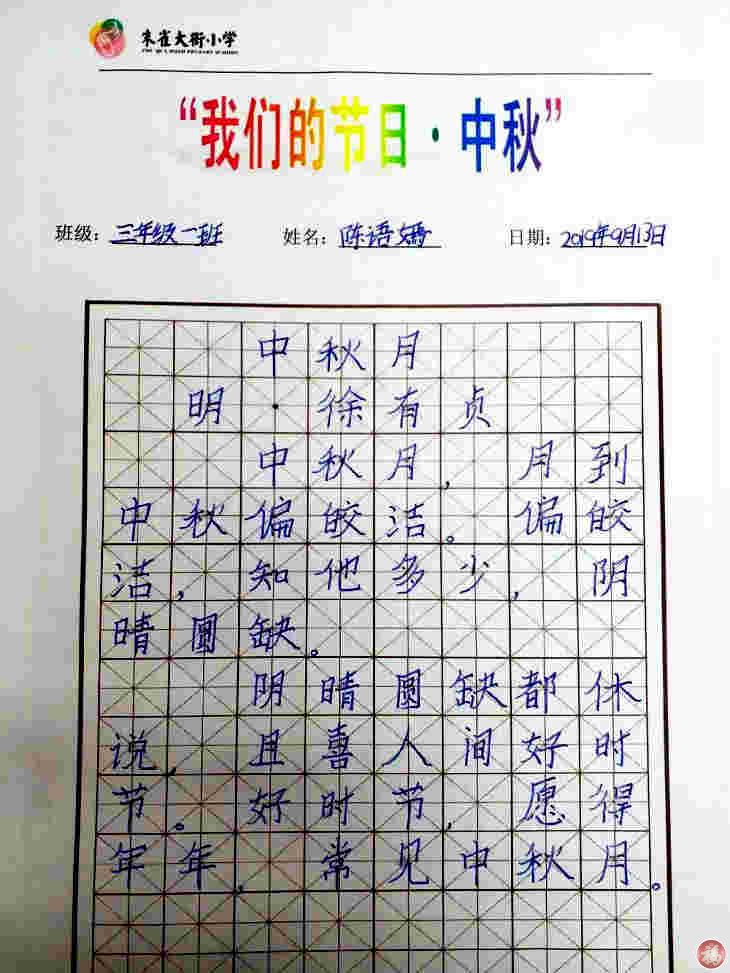 朱雀大街小学
“我们的节日·中秋”
班级：三年级一班 姓名：陈语嫣 日期：2019年9月13日
中秋月
明·徐有贞
中秋月，月到
中秋偏皎洁。偏皎
洁，知他多少，阴
晴圆缺。
阴晴圆缺都休
说，且喜人间好时
节。好时节，愿得
年年，常见中秋月。